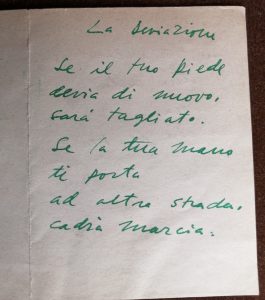 La Deviazione
Se il tuo piede
devia di nuovo,
sarà tagliato.
Se la tua mano
ti porta
ad altra strada,
cadrà marcia.